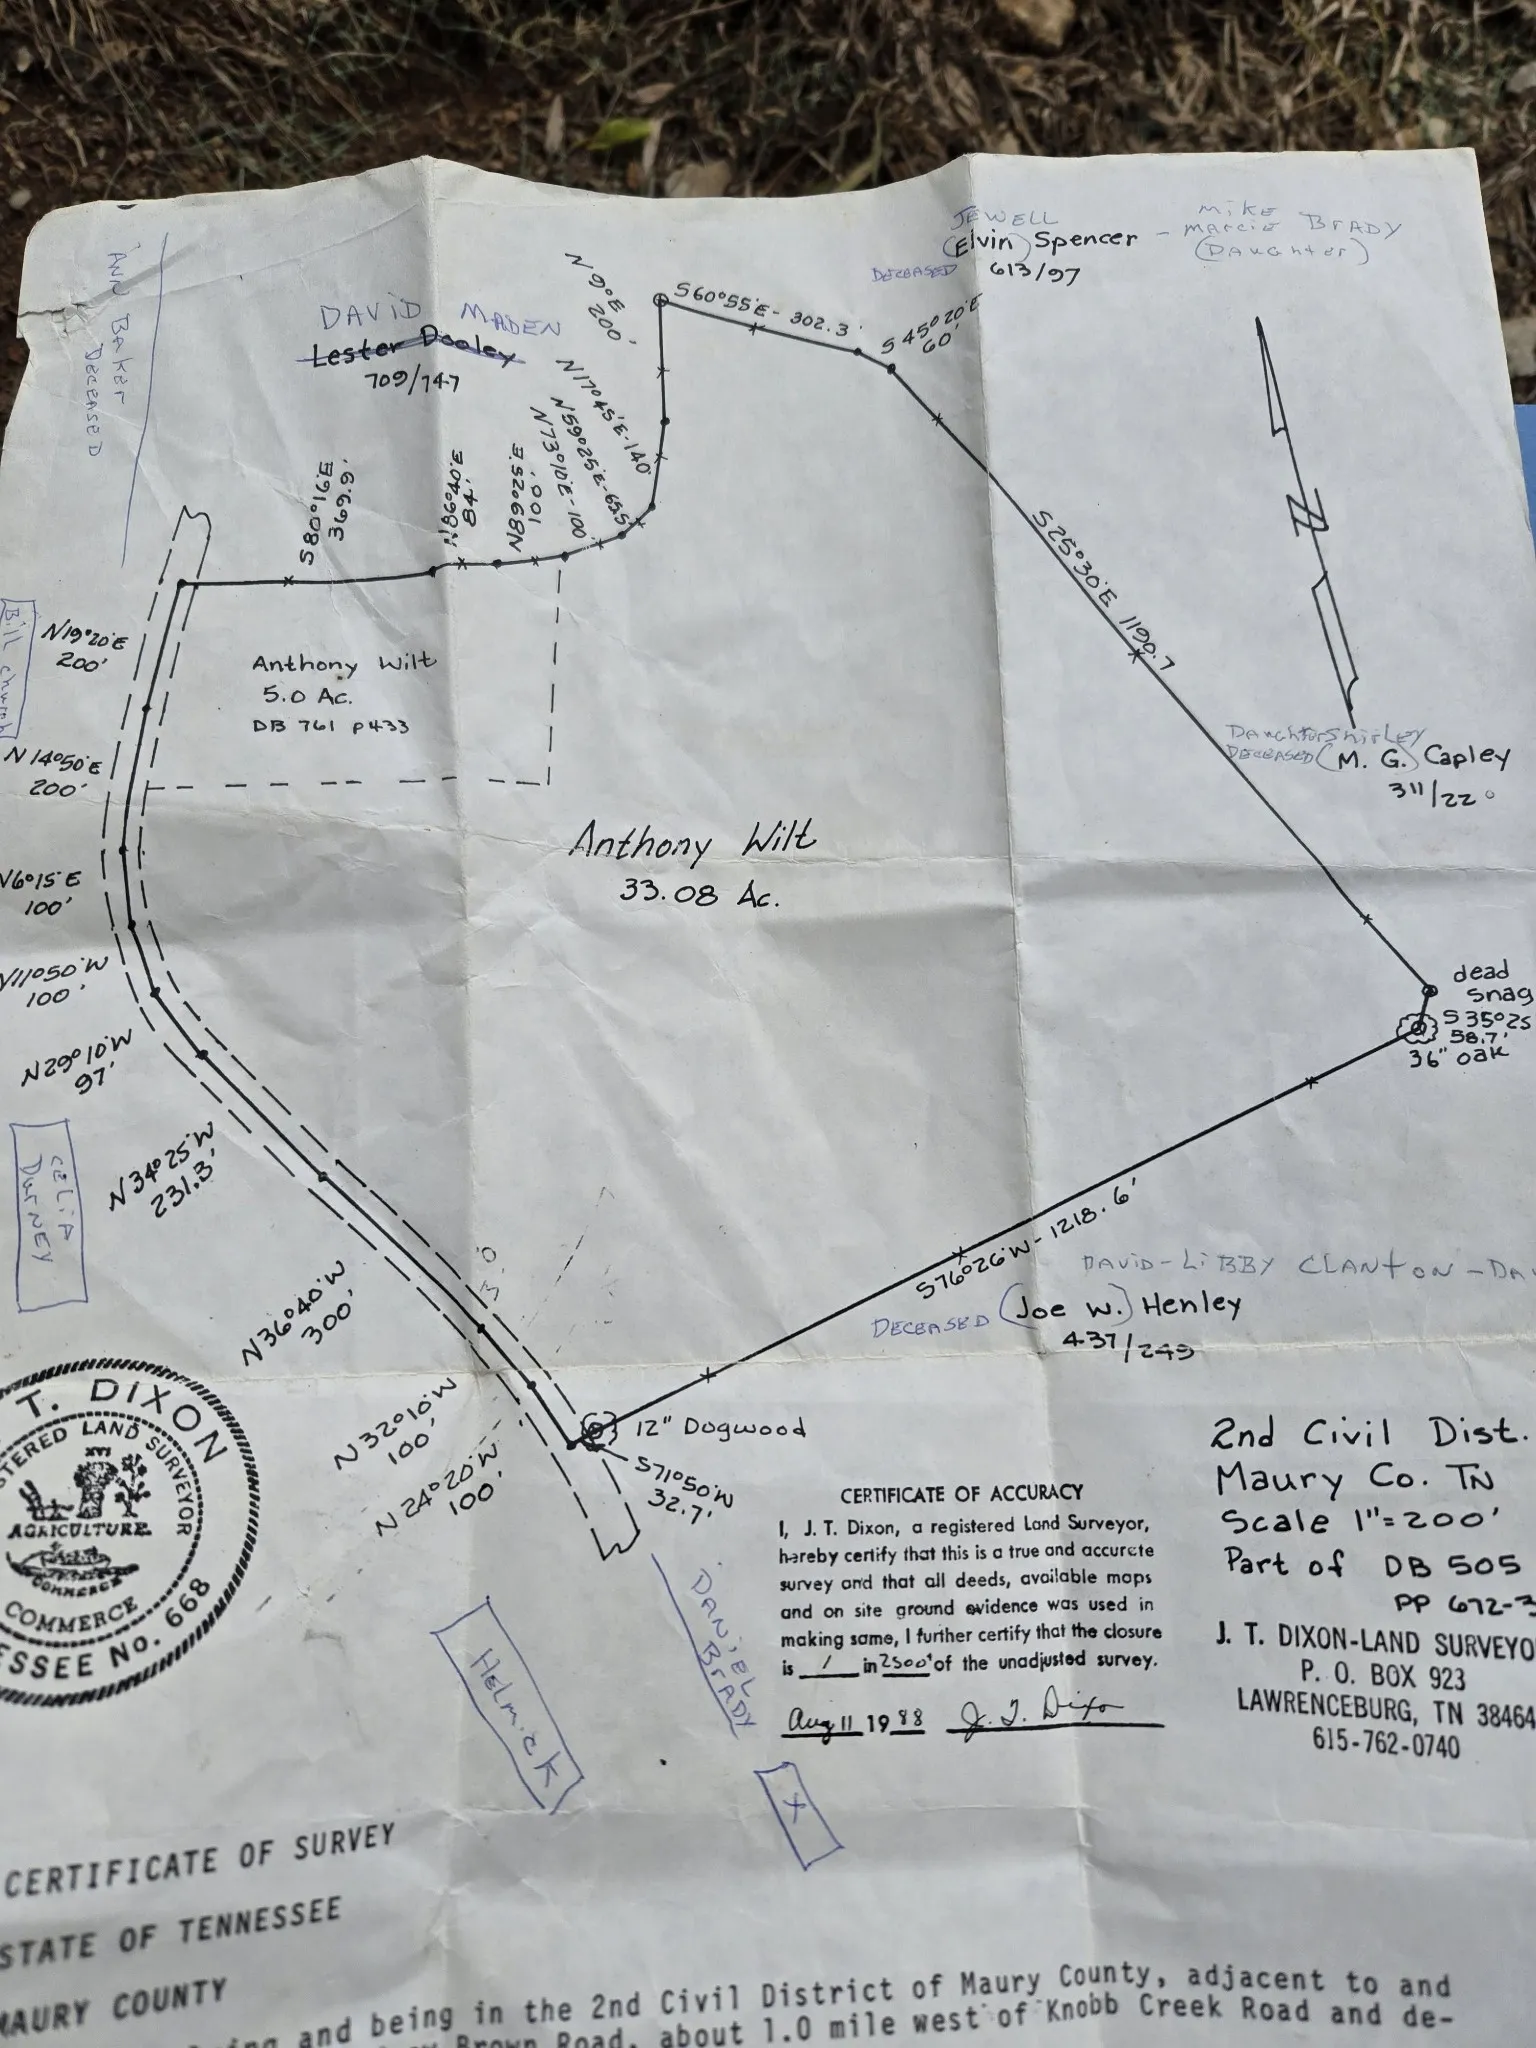 JEWELL
MIKE
MARCIE BRADY
(Elvin) Spencer -
(DAUGHTER)
DECEASED 613/97
ANN BAKER
DECEASED
DAVID MADEN
Lester Dooley
709/747
N 9° E
200'
S60°55'E - 302.3'
S 45°20'E
60'
N17°45'E-140'
N59°25'E-65.5'
N73°10'E-100'
N89°25'E
100'
N86°40'E
84'
S80°16'E
369.9'
S25°30'E 1190.7
Bill Chumb
N19°20'E
200'
Anthony Wilt
5.0 Ac.
DB 761 P433
N 14°50'E
200'
DAUGHTER SHIRLEY
DECEASED (M. G.) Capley
311/22
Anthony Wilt
33.08 Ac.
N6°15'E
100'
N11°50'W
100'
dead
snag
S 35°25
58.7'
36" oak
N29°10'W
97'
CELIA
DURNEY
N34°25'W
231.3'
S76°26'W - 1218.6'
DAVID-LIBBY CLANTON - DA
DECEASED (Joe W.) Henley
437/249
3.0
N36°40'W
300'
N 32°10'W
100'
N 24°20'W
100'
12" Dogwood
S71°50'W
32.7'
T. DIXON
STERED LAND SURVEYOR
XVI
AGRICULTURE
COMMERCE
COMMERCE
ESSEE NO. 668
2nd Civil Dist.
Maury Co. TN
Scale 1"=200'
Part of DB 505
PP 672-3
J. T. DIXON-LAND SURVEYO
P. O. BOX 923
LAWRENCEBURG, TN 38464
615-762-0740
CERTIFICATE OF ACCURACY
I, J. T. Dixon, a registered Land Surveyor,
hereby certify that this is a true and accurate
survey and that all deeds, available maps
and on site ground evidence was used in
making same, I further certify that the closure
is 1 in 2500' of the unadjusted survey.
Aug 11 1988 J. T. Dixon
HELMICK
DANIEL
BRADY
X
CERTIFICATE OF SURVEY
STATE OF TENNESSEE
MAURY COUNTY
and being in the 2nd Civil District of Maury County, adjacent to and
Brown Road, about 1.0 mile west of Knobb Creek Road and de-